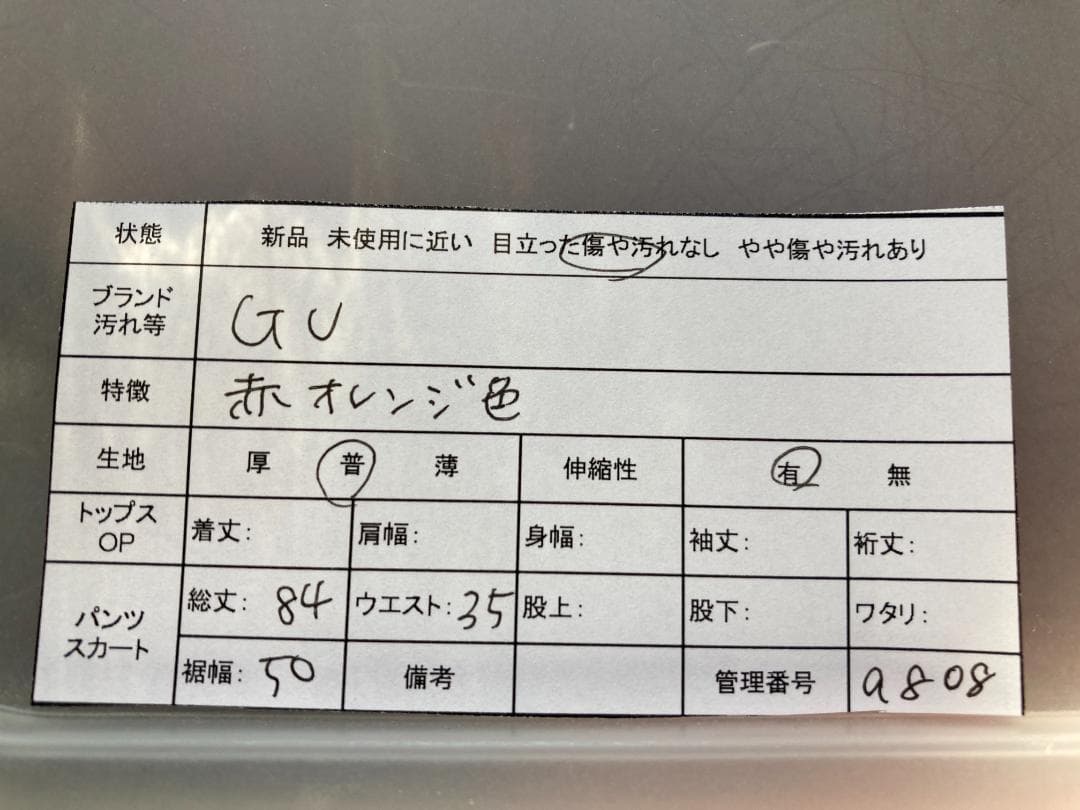 状態 新品 未使用に近い 目立った傷や汚れなし やや傷や汚れあり
ブランド
汚れ等 GU
特徴 赤オレンジ色
生地 厚 普 薄 伸縮性 有 無
トップス
OP 着丈: 肩幅: 身幅: 袖丈: 裄丈:
パンツ
スカート 総丈: 84 ウエスト: 35 股上: 股下: ワタリ:
裾幅: 50 備考 管理番号 a808